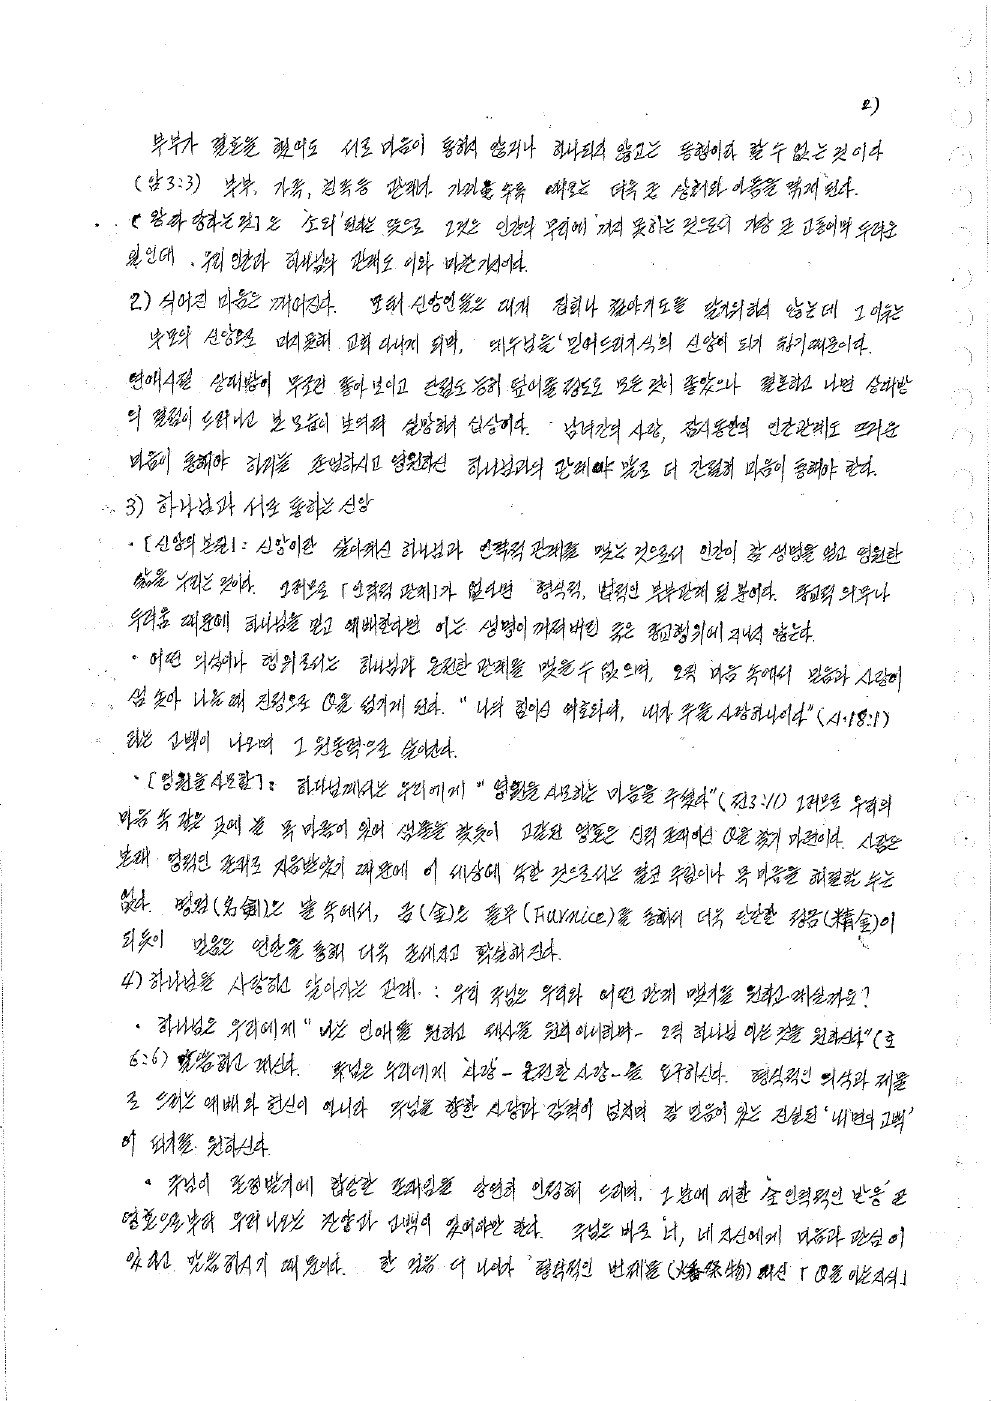 2)
부부가 결혼을 했어도 서로 마음이 통하지 않거나 하나되지 않고는 동행이라 할 수 없는 것이다
(암3:3) 부부, 가족, 친족등 관계나 거리를 두를 때로는 더욱 큰 상처와 아픔을 먹게 된다.
은 '소외'란는 뜻으로 그것은 인간의 무리에 끼지 못하는 것으로서 가장 큰 고통이며 두려운
일인데, 우리 인간과 하나님의 관계도 이와 마찬가지이다.
2) 식어진 마음은 깨어진다. 모태 신앙인들은 대개 집회나 찾아기도를 달가워하지 않는데 그 이유는
부모의 신앙으로 마지못해 교회 다니게 되며, 예수님을 '믿어드리기식'의 신앙이 되기 쉽기때문이다.
연애시절 상대방이 무조건 좋아 보이고 단점도 능히 덮어줄 정도로 모든 것이 좋았으나 결혼하고 나면 상대방
의 결점이 드러나고 본 모습이 보여져 실망하기 십상이다. 남녀간의 사랑, 잠시동안의 인간관계도 뜨거운
마음이 통해야 하거늘 존엄하시고 영원하신 하나님과의 관계야 말로 더 간절히 마음이 통해야 한다.
3) 하나님과 서로 통하는 신앙
· [신앙의 본질]: 신앙이란 살아계신 하나님과 인격적 관계를 맺는 것으로서 인간이 참 생명을 얻고 영원한
삶을 누리는 것이다. 그러므로 「인격적 관계」가 없다면 형식적, 법적인 부부관계 될 뿐이다. 종교적 의무나
두려움 때문에 하나님을 믿고 예배한다면 이는 생명이 꺼져버린 죽은 종교행위에 지나지 않는다.
· 어떤 의식이나 행위로서는 하나님과 온전한 관계를 맺을 수 없으며, 오직 마음 속에서 믿음과 사랑이
샘 솟아 나올 때 진정으로 섬기게 된다. "나의 힘이신 여호와여, 내가 주를 사랑하나이다"(시·18:1)
라는 고백이 나오며 그 원동력으로 살아간다.
· [영원을 사모함]: 하나님께서는 우리에게 "영원을 사모하는 마음을 주셨다"(전3:11) 그러므로 우리의
마음 속 깊은 곳에 늘 목마름이 있어 샘물을 찾듯이 고갈된 영혼은 신적 존재이신 찾기 마련이다. 사람은
본래 영적인 존재로 지음받았기 때문에 이 세상에 속한 것으로서는 결코 주림이나 목마름을 해결할 수는
없다. 명검(名劍)은 불 속에서, 금(金)은 풀무(Furnice)를 통해서 더욱 단단한 정금(精金)이
되듯이 믿음은 연단을 통해 더욱 굳세지고 확실해진다.
4) 하나님을 사랑하고 알아가는 관계. : 우리 주님은 우리와 어떤 관계 맺기를 원하고 계실까요?
· 하나님은 우리에게 "나는 인애를 원하고 제사를 원치 아니하며- 오직 하나님 아는 것을 원하신다"(호
6:6) 말씀하고 계신다. 주님은 우리에게 '사랑'-온전한 사랑-을 요구하신다. 형식적인 의식과 제물
로 드리는 예배와 헌신이 아니라 주님을 향한 사랑과 감격이 넘치며 참 믿음이 있는 진실된 '내면의 고백'
이 되기를 원하신다.
· 주님이 존경받기에 합당한 존재임을 당연히 인정해 드리며, 그 분에 대한 '全인격적인 반응'
영혼으로부터 우러나오는 찬양과 고백이 있어야만 한다. 주님은 바로 너, 네 자신에게 마음과 관심이
있다고 말씀하시기 때문이다. 한 걸음 더 나아가 '형식적인 번제물 대신 아는 지식」